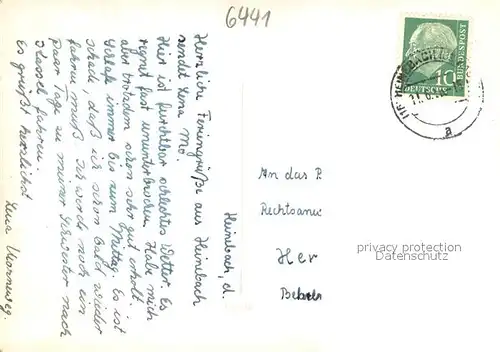 6441
Heimbach, d.
Herzliche Feriengrüße aus Heimbach
sendet Lena Mo.
Hier ist furchtbar schlechtes Wetter. Es
regnet fast ununterbrochen. Habe mich
aber trotzdem schon sehr gut erholt.
Schlafe immer bis zum Mittag. Es ist
schade, daß ich schon bald wieder
fahren muß. Ich werde noch ein
paar Tage zu meiner Schwester nach
Kassel fahren.
Es grüßt herzlichst
Lena
DEUTSCHE BUNDESPOST
10
HEIMBACH
a
An das
Rechtsanw
Her
privacy protection
Datenschutz